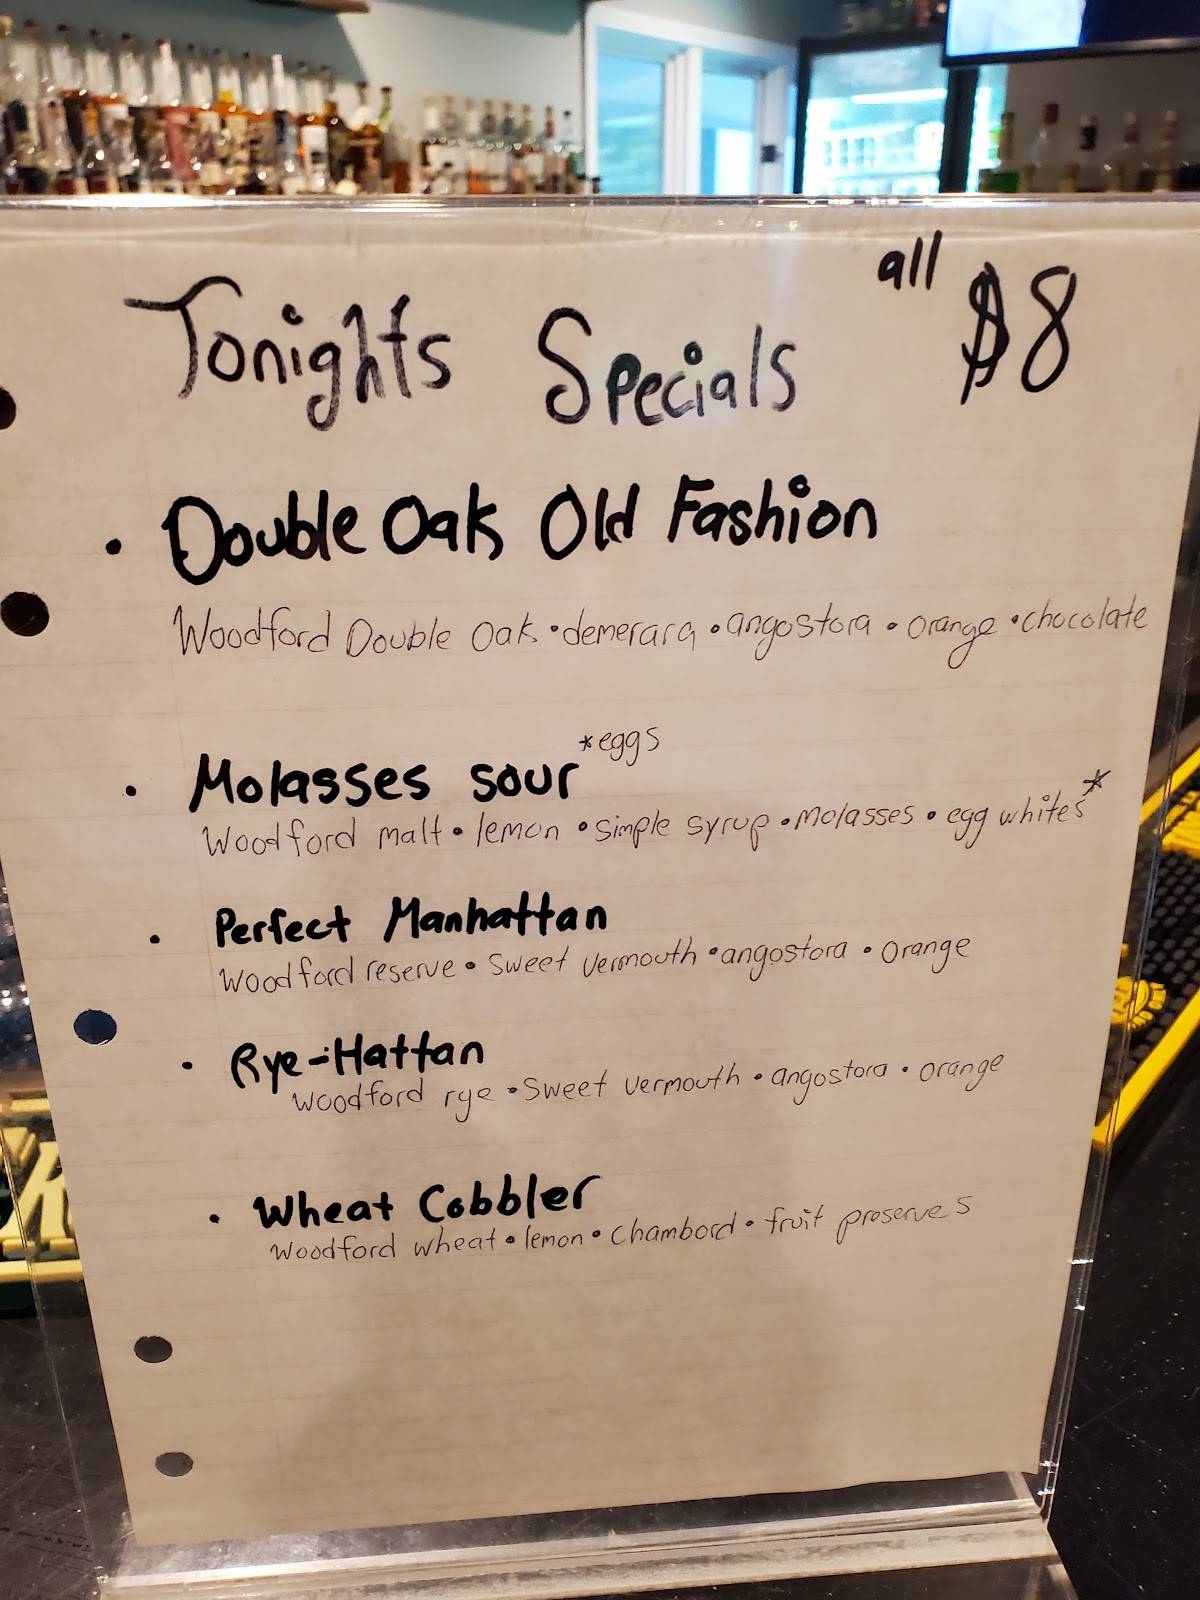 Tonights Specials all $8
• Double Oak Old Fashion
Woodford Double Oak • demerara • angostora • orange • chocolate
• Molasses sour *eggs
Woodford malt • lemon • simple syrup • molasses • egg whites*
• Perfect Manhattan
Woodford reserve • Sweet vermouth • angostora • orange
• Rye-Hattan
Woodford rye • Sweet vermouth • angostora • orange
• Wheat Cobbler
Woodford wheat • lemon • Chambord • fruit preserves